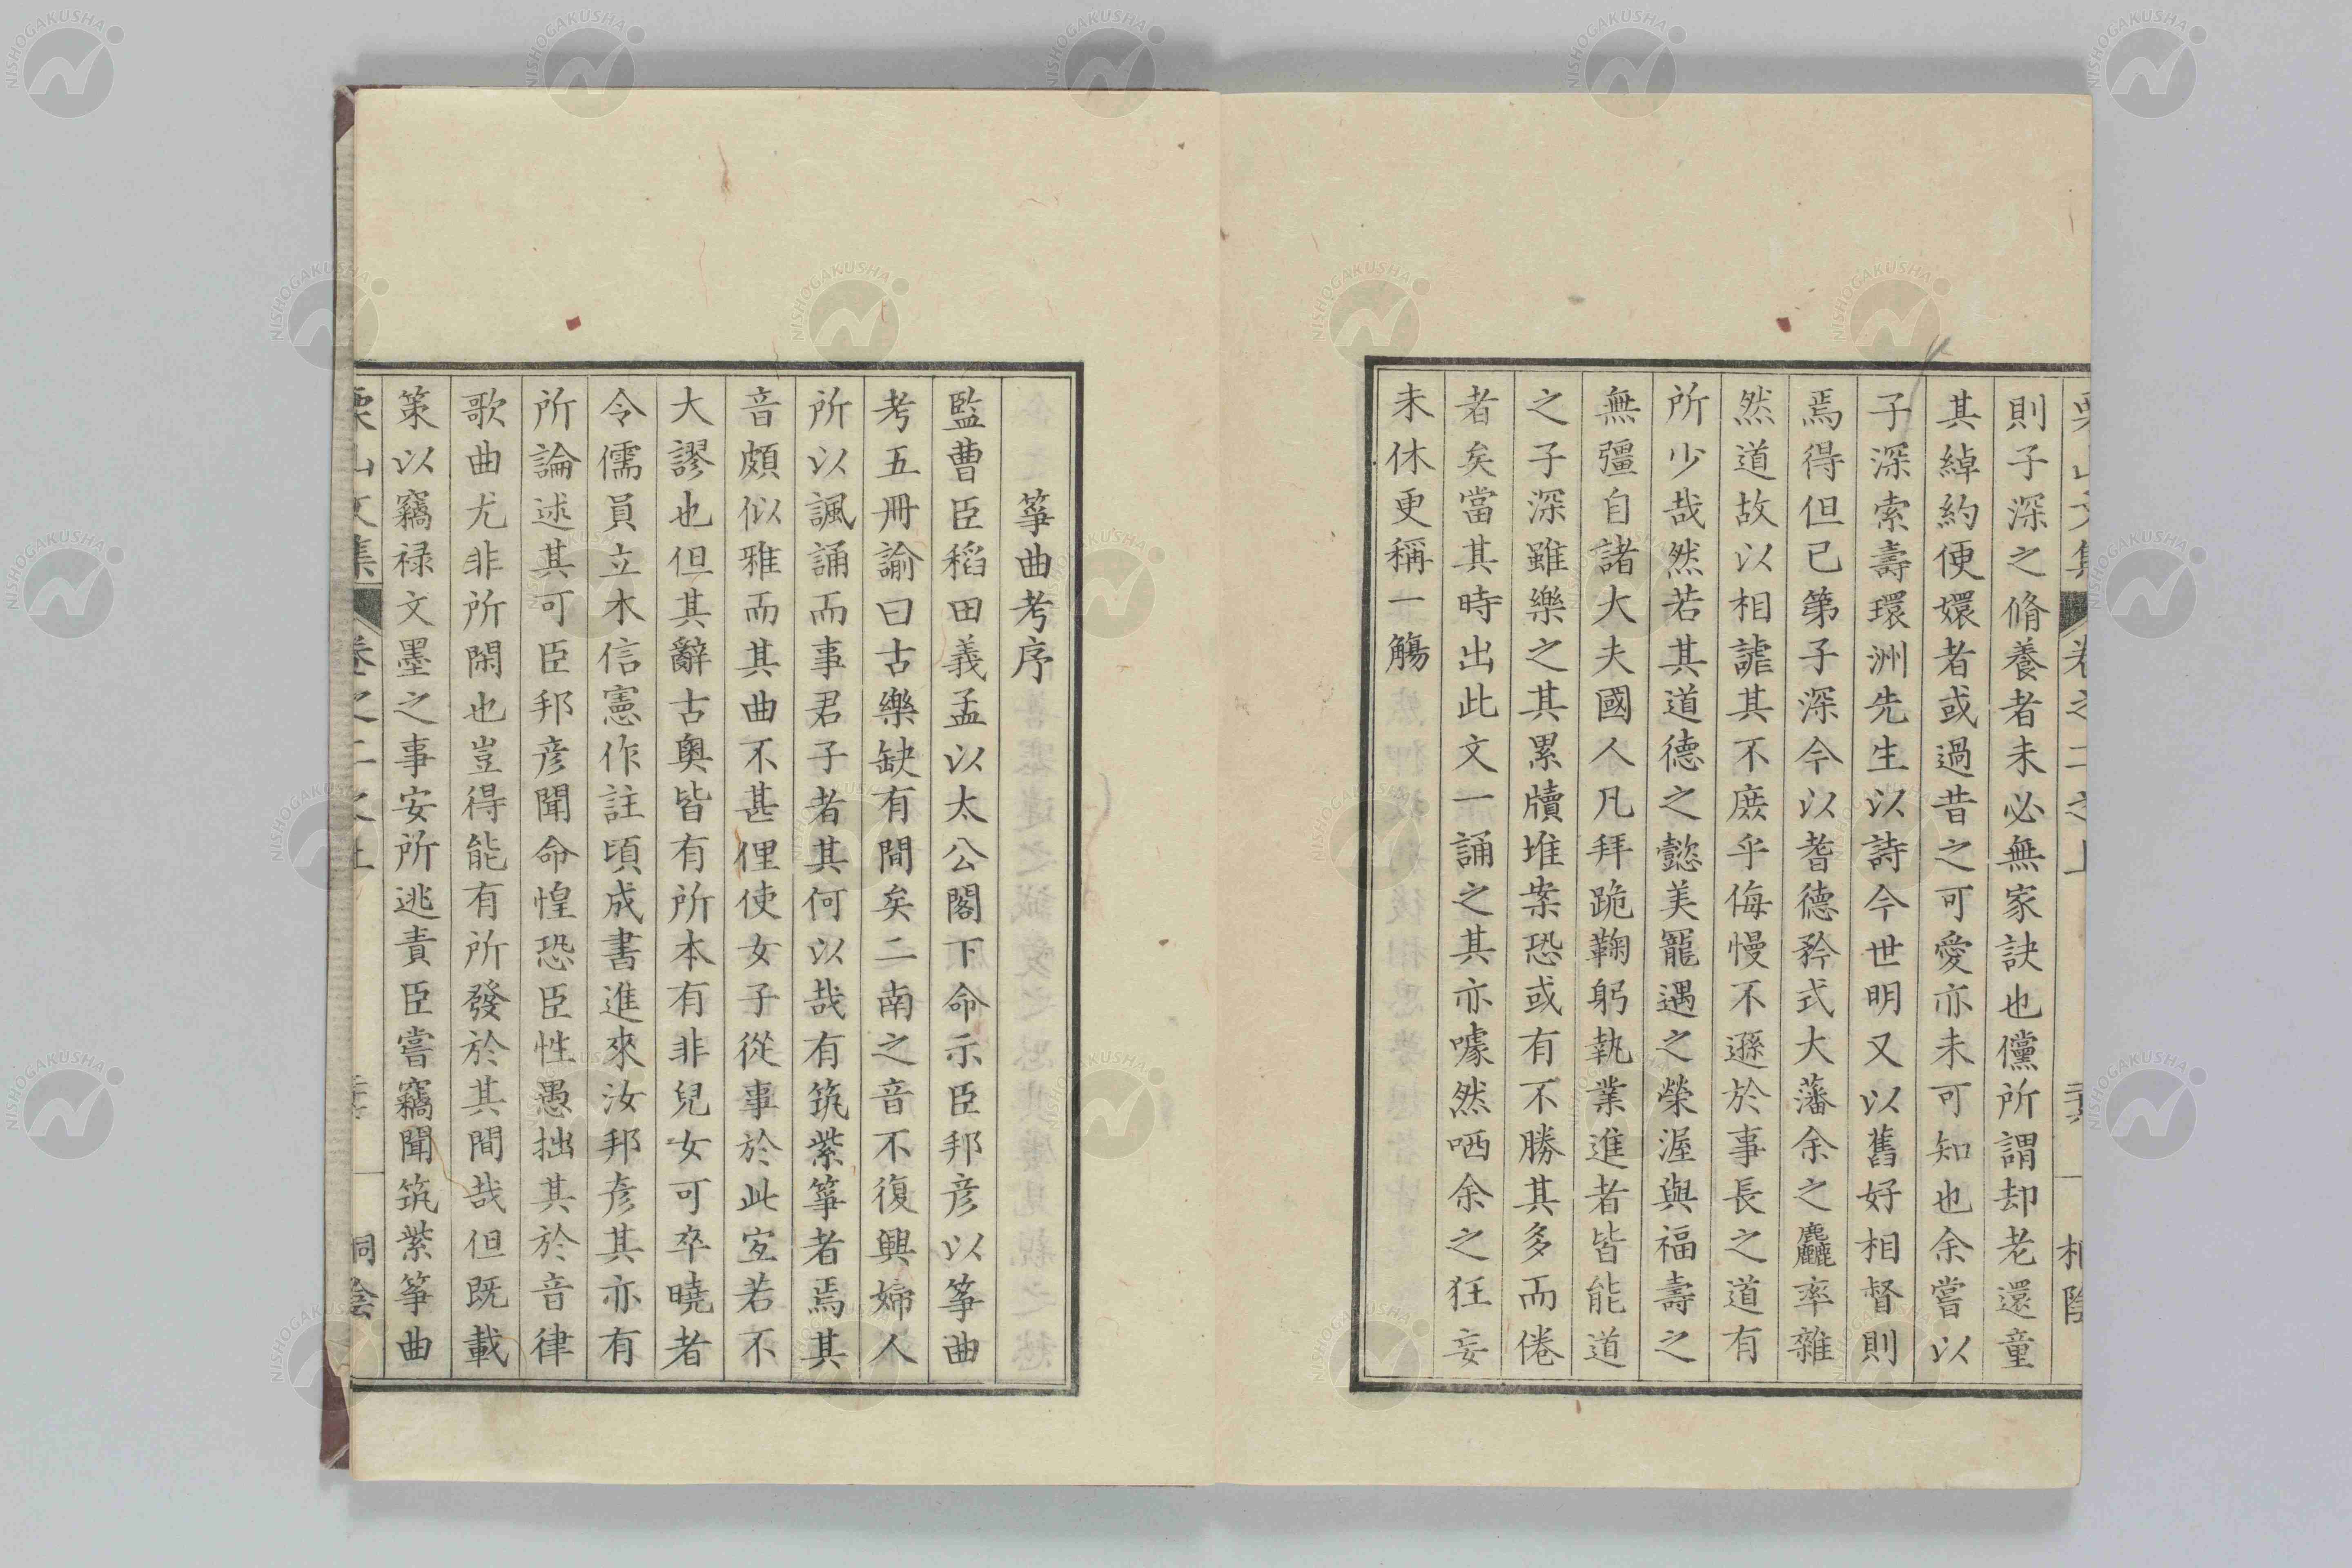 則子深之脩養者未必無家訣也儻所謂却老還童
其綽約便嬛者或過昔之可愛亦未可知也余嘗以
子深索壽環洲先生以詩今世明又以舊好相督則
焉得但已第子深今以耆德矜式大藩余之麤率雜
然道故以相謔其不庶乎侮慢不遜於事長之道有
所少哉然若其道德之懿美寵遇之榮渥與福壽之
無彊自諸大夫國人凡拜跪鞠躬執業進者皆能道
之子深雖樂之其累牘堆案恐或有不勝其多而倦
者矣當其時出此文一誦之其亦噱然哂余之狂妄
未休更稱一觴
箏曲考序
監曹臣稻田義孟以太公閣下命示臣邦彦以箏曲
考五冊諭曰古樂缺有間矣二南之音不復興婦人
所以諷誦而事君子者其何以哉有筑紫箏者焉其
音頗似雅而其曲不甚俚使女子從事於此宐若不
大謬也但其辭古奧皆有所本有非兒女可卒曉者
令儒員立木信憲作註頃成書進來汝邦彦其亦有
所論述其可臣邦彦聞命惶恐臣性愚拙其於音律
歌曲尤非所閑也豈得能有所發於其間哉但既載
策以竊禄文墨之事安所逃責臣嘗竊聞筑紫箏曲
栗山文集 卷之二之上